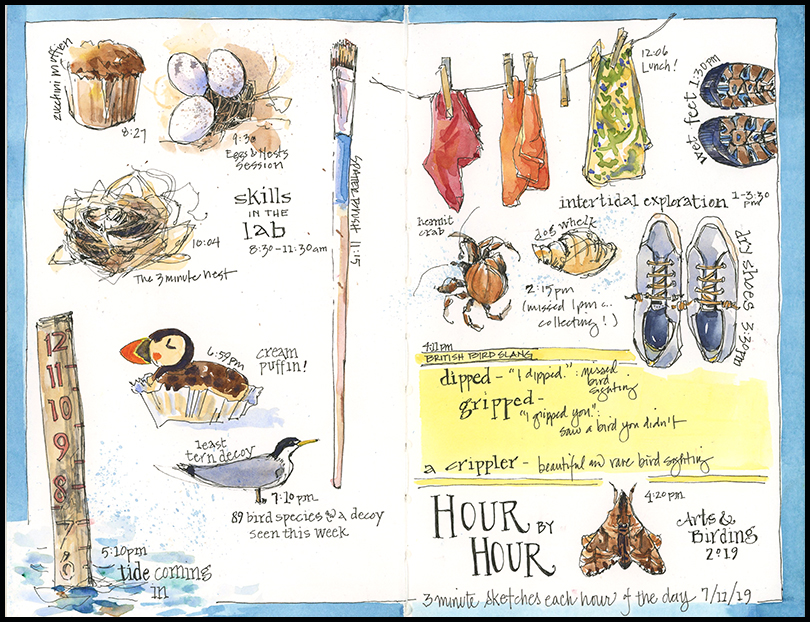 zucchini muffin
8:27
9:30
Eggs & Nests
Session
10:04
The 3 minute nest
skills
in the
lab
8:30-11:30am
Spatter Brush 11:15
12
11
10
9
8
7
6
5:10pm
tide coming
in
6:59pm
cream
puffin!
least
tern decoy
7:10pm
89 bird species & a decoy
seen this week
12:06
Lunch!
wet feet 1:30pm
intertidal exploration 1-3:30
pm
hermit
crab
dog whelk
2:15pm
(missed 1pm ...
collecting!)
dry shoes 3:30pm
4:11pm
British Bird Slang
dipped - "I dipped.": missed
bird
sighting
gripped-
"I gripped you":
saw a bird you didn't
a crippler - beautiful and rare bird sighting
Hour by
Hour
4:20pm
Arts &
Birding
2019
3 minute sketches each hour of the day 7/11/19